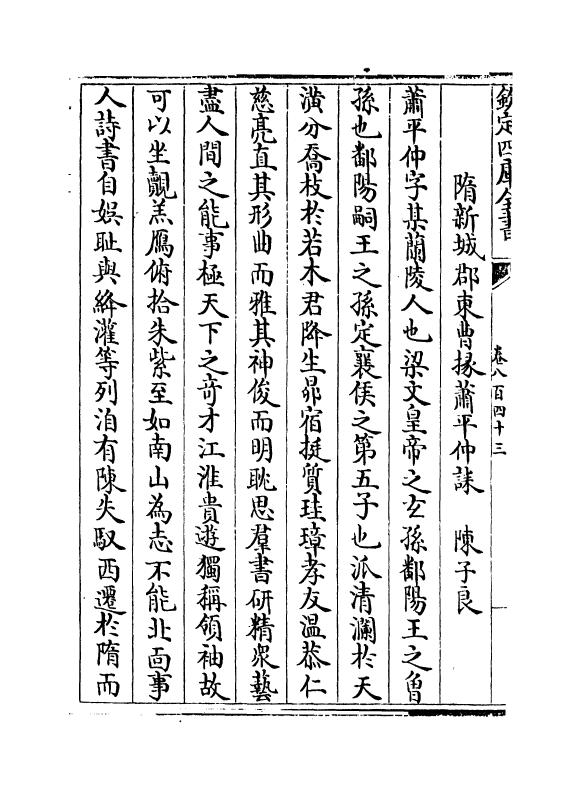 欽定四庫全書
卷八百四十三
隋新城郡東曹掾蕭平仲誄　陳子良
蕭平仲字某蘭陵人也梁文皇帝之玄孫鄱陽王之曾
孫也鄱陽嗣王之孫定襄侯之第五子也派清瀾於天
潢分喬枝於若木君降生昴宿挺質珪璋孝友温恭仁
慈亮直其形曲而雅其神俊而明眺思羣書研精衆藝
盡人間之能事極天下之竒才江淮貴遊獨稱領袖故
可以坐覿羔鴈俯拾朱紫至如南山為志不能北面事
人詩書自娯耻與絳灌等列洎有陳失馭西遷於隋而